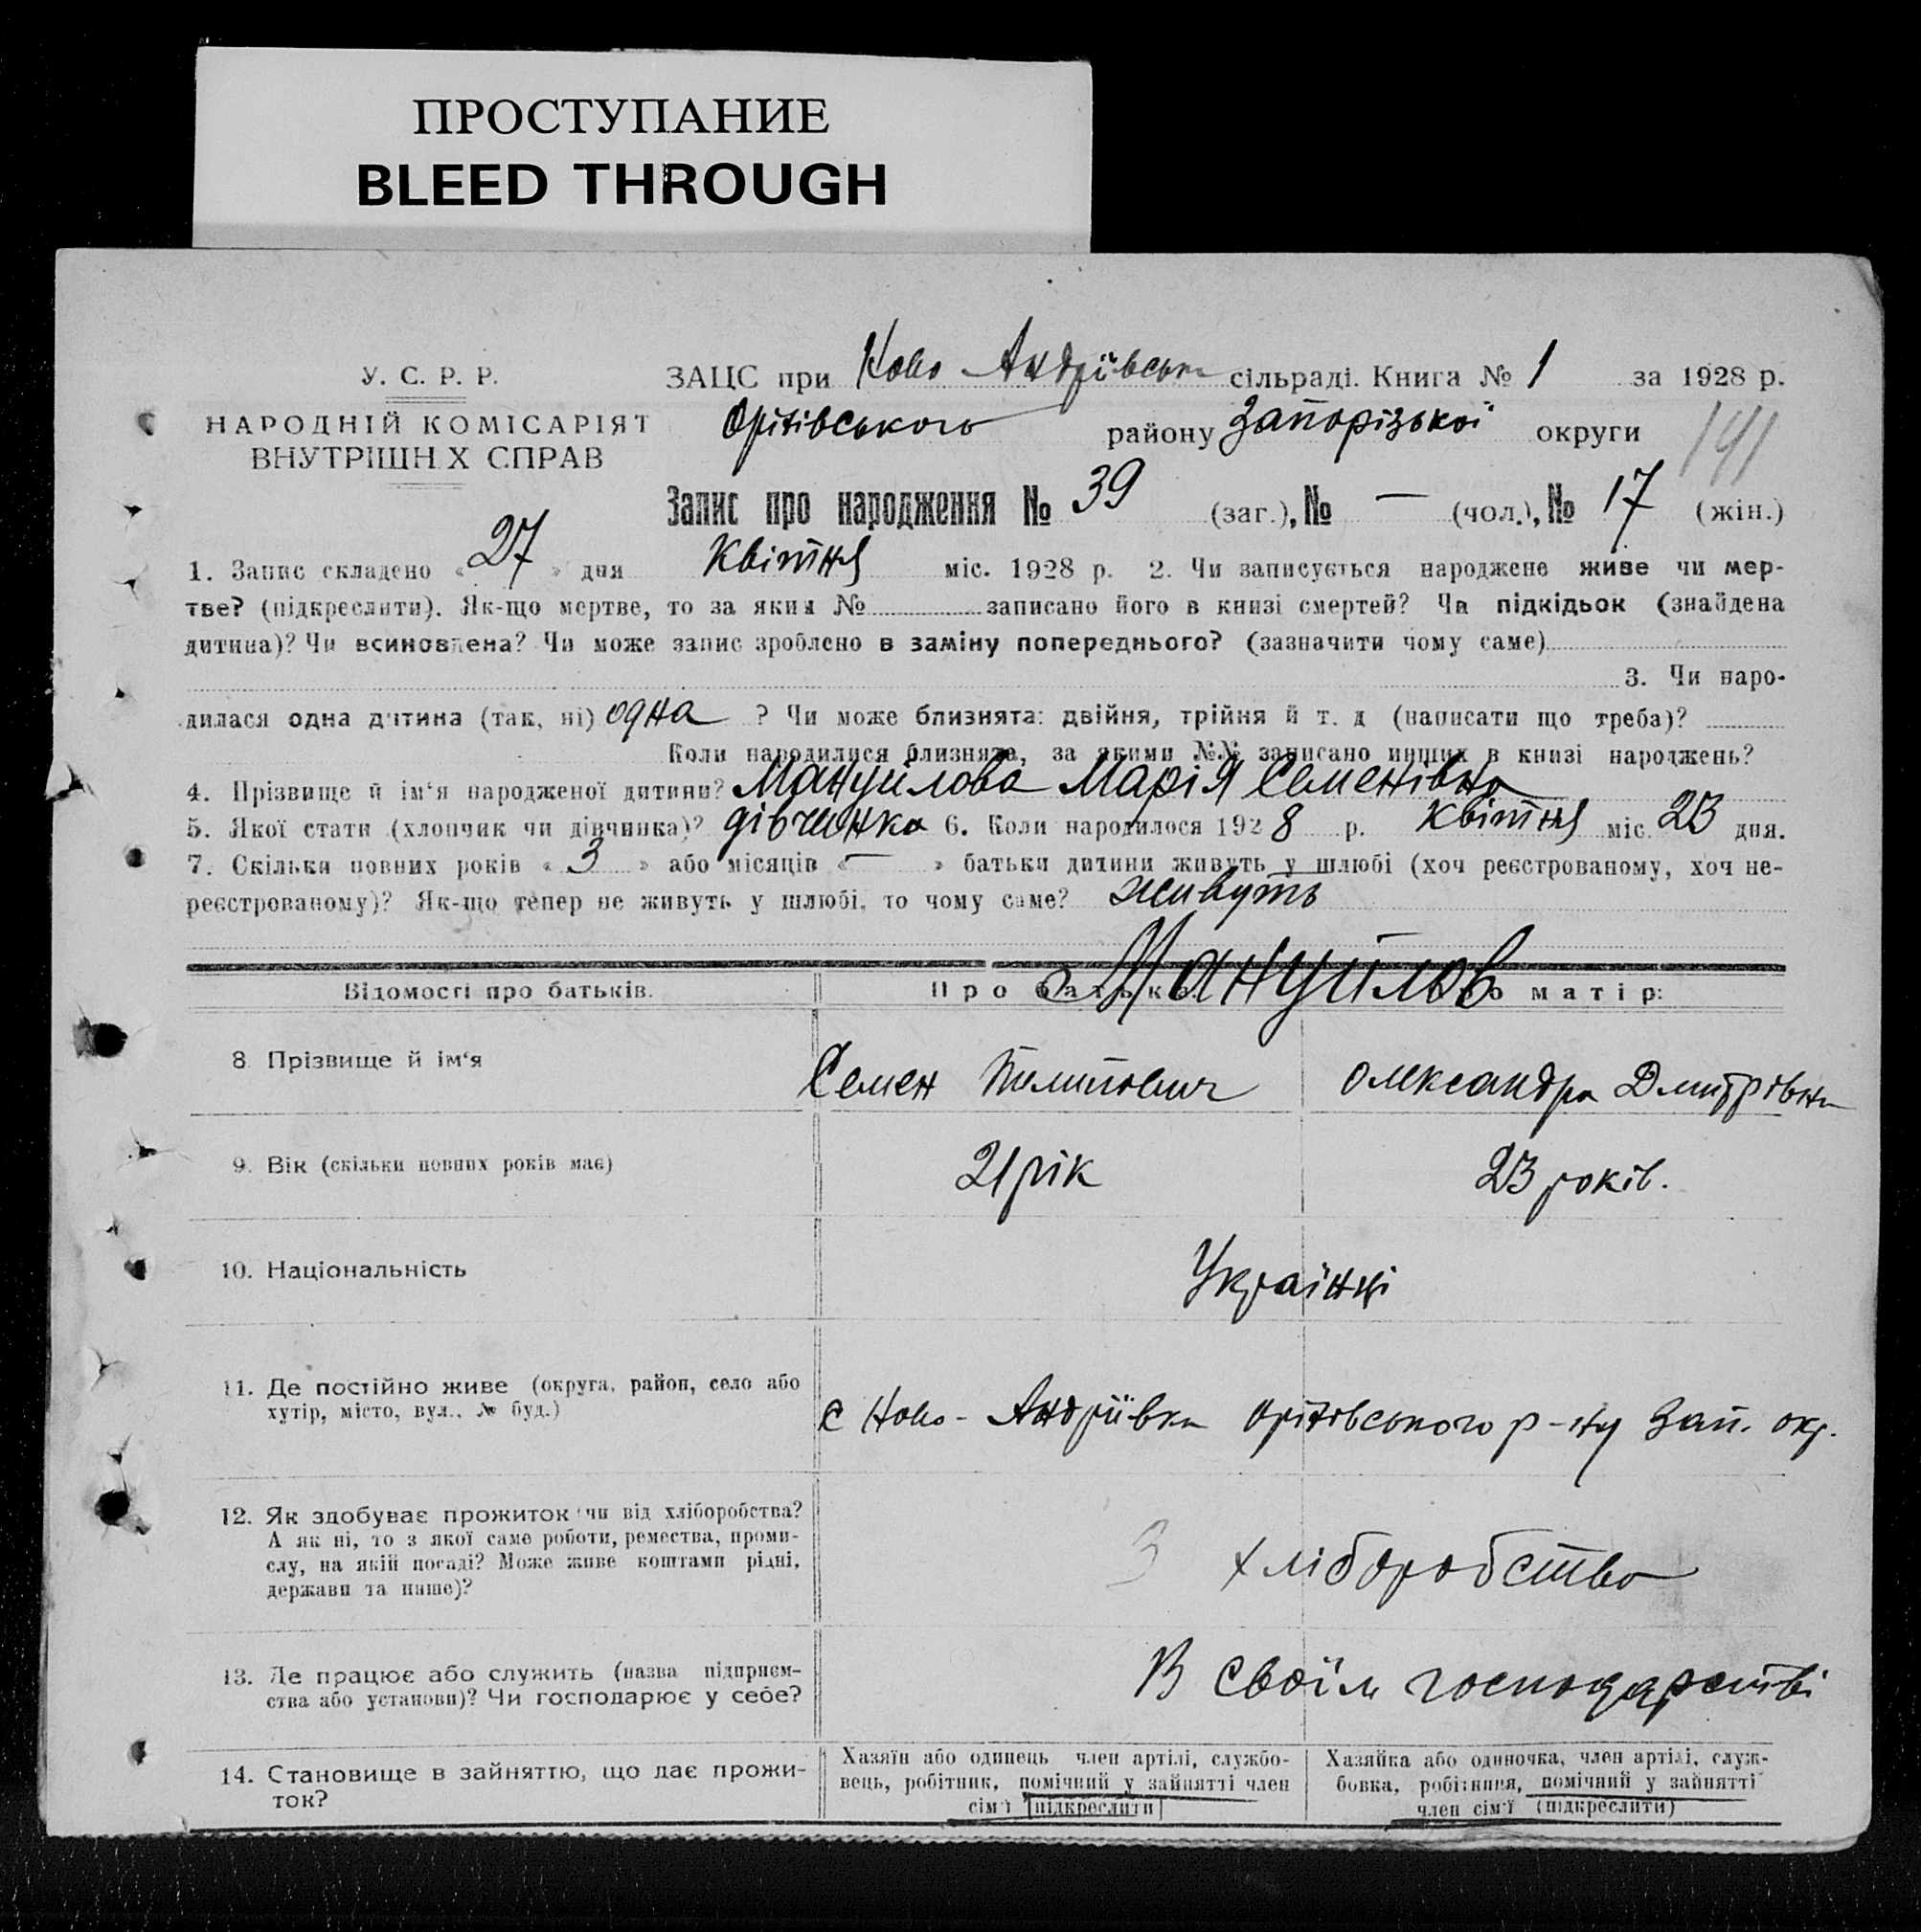 ПРОСТУПАНИЕ
BLEED THROUGH
У. С. Р. Р.
НАРОДНІЙ КОМІСАРІЯТ
ВНУТРІШН Х СПРАВ
ЗАЦС при Ново-Андріївськ сільраді. Книга № 1 за 1928 р.
Оріхівського району Запорізької округи
191
Запис про народження № 39 (заг.), № — (чол.), № 17 (жін.)
1. Запис складено « 27 » дня квітня міс. 1928 р. 2. Чи записується народжене живе чи мер-
тве? (підкреслити). Як-що мертве, то за яким № записано його в книзі смертей? Чи підкідьок (знайдена
дитина)? Чи всиновлена? Чи може запис зроблено в заміну попереднього? (зазначити чому саме)
3. Чи наро-
дилася одна дитина (так, ні) одна ? Чи може близнята: двійня, трійня й т. д (написати що треба)?
Коли народилися близнята, за якими №№ записано инших в книзі народжень?
4. Прізвище й ім'я народженої дитини? Мануйлова Марія Семенівна
5. Якої стати (хлопчик чи дівчинка)? дівчинка 6. Коли народилося 1928 р. квітня міс. 23 дня.
7. Скільки повних років « 3 » або місяців « — » батьки дитини живуть у шлюбі (хоч реєстрованому, хоч не-
реєстрованому)? Як-що тепер не живуть у шлюбі, то чому саме? живуть
Відомості про батьків. Про батька: Про матір:
Мануйлов
8 Прізвище й ім'я Семен Пилипович Олександра Дмитрівна
9. Вік (скільки повних років має) 21 рік 23 років.
10. Національність Українці
11. Де постійно живе (округа, район, село або
хутір, місто, вул., № буд.)
с Ново-Андріївка Оріхівського р-ну Зап. окр.
12. Як здобуває прожиток чи від хліборобства?
А як ні, то з якої саме роботи, ремества, проми-
слу, на якій посаді? Може живе коштами рідні,
держави та инше)?
З хліборобства
13. Де працює або служить (назва підприєм-
ства або установи)? Чи господарює у себе?
В своїм господарстві
14. Становище в зайняттю, що дає прожи-
ток?
Хазяїн або одинець член артілі, службо-
вець, робітник, помічний у зайнятті член
сім'ї (підкреслити)
Хазяйка або одиночка, член артілі, служ-
бовка, робітниця, помічний у зайнятті
член сім'ї (підкреслити)